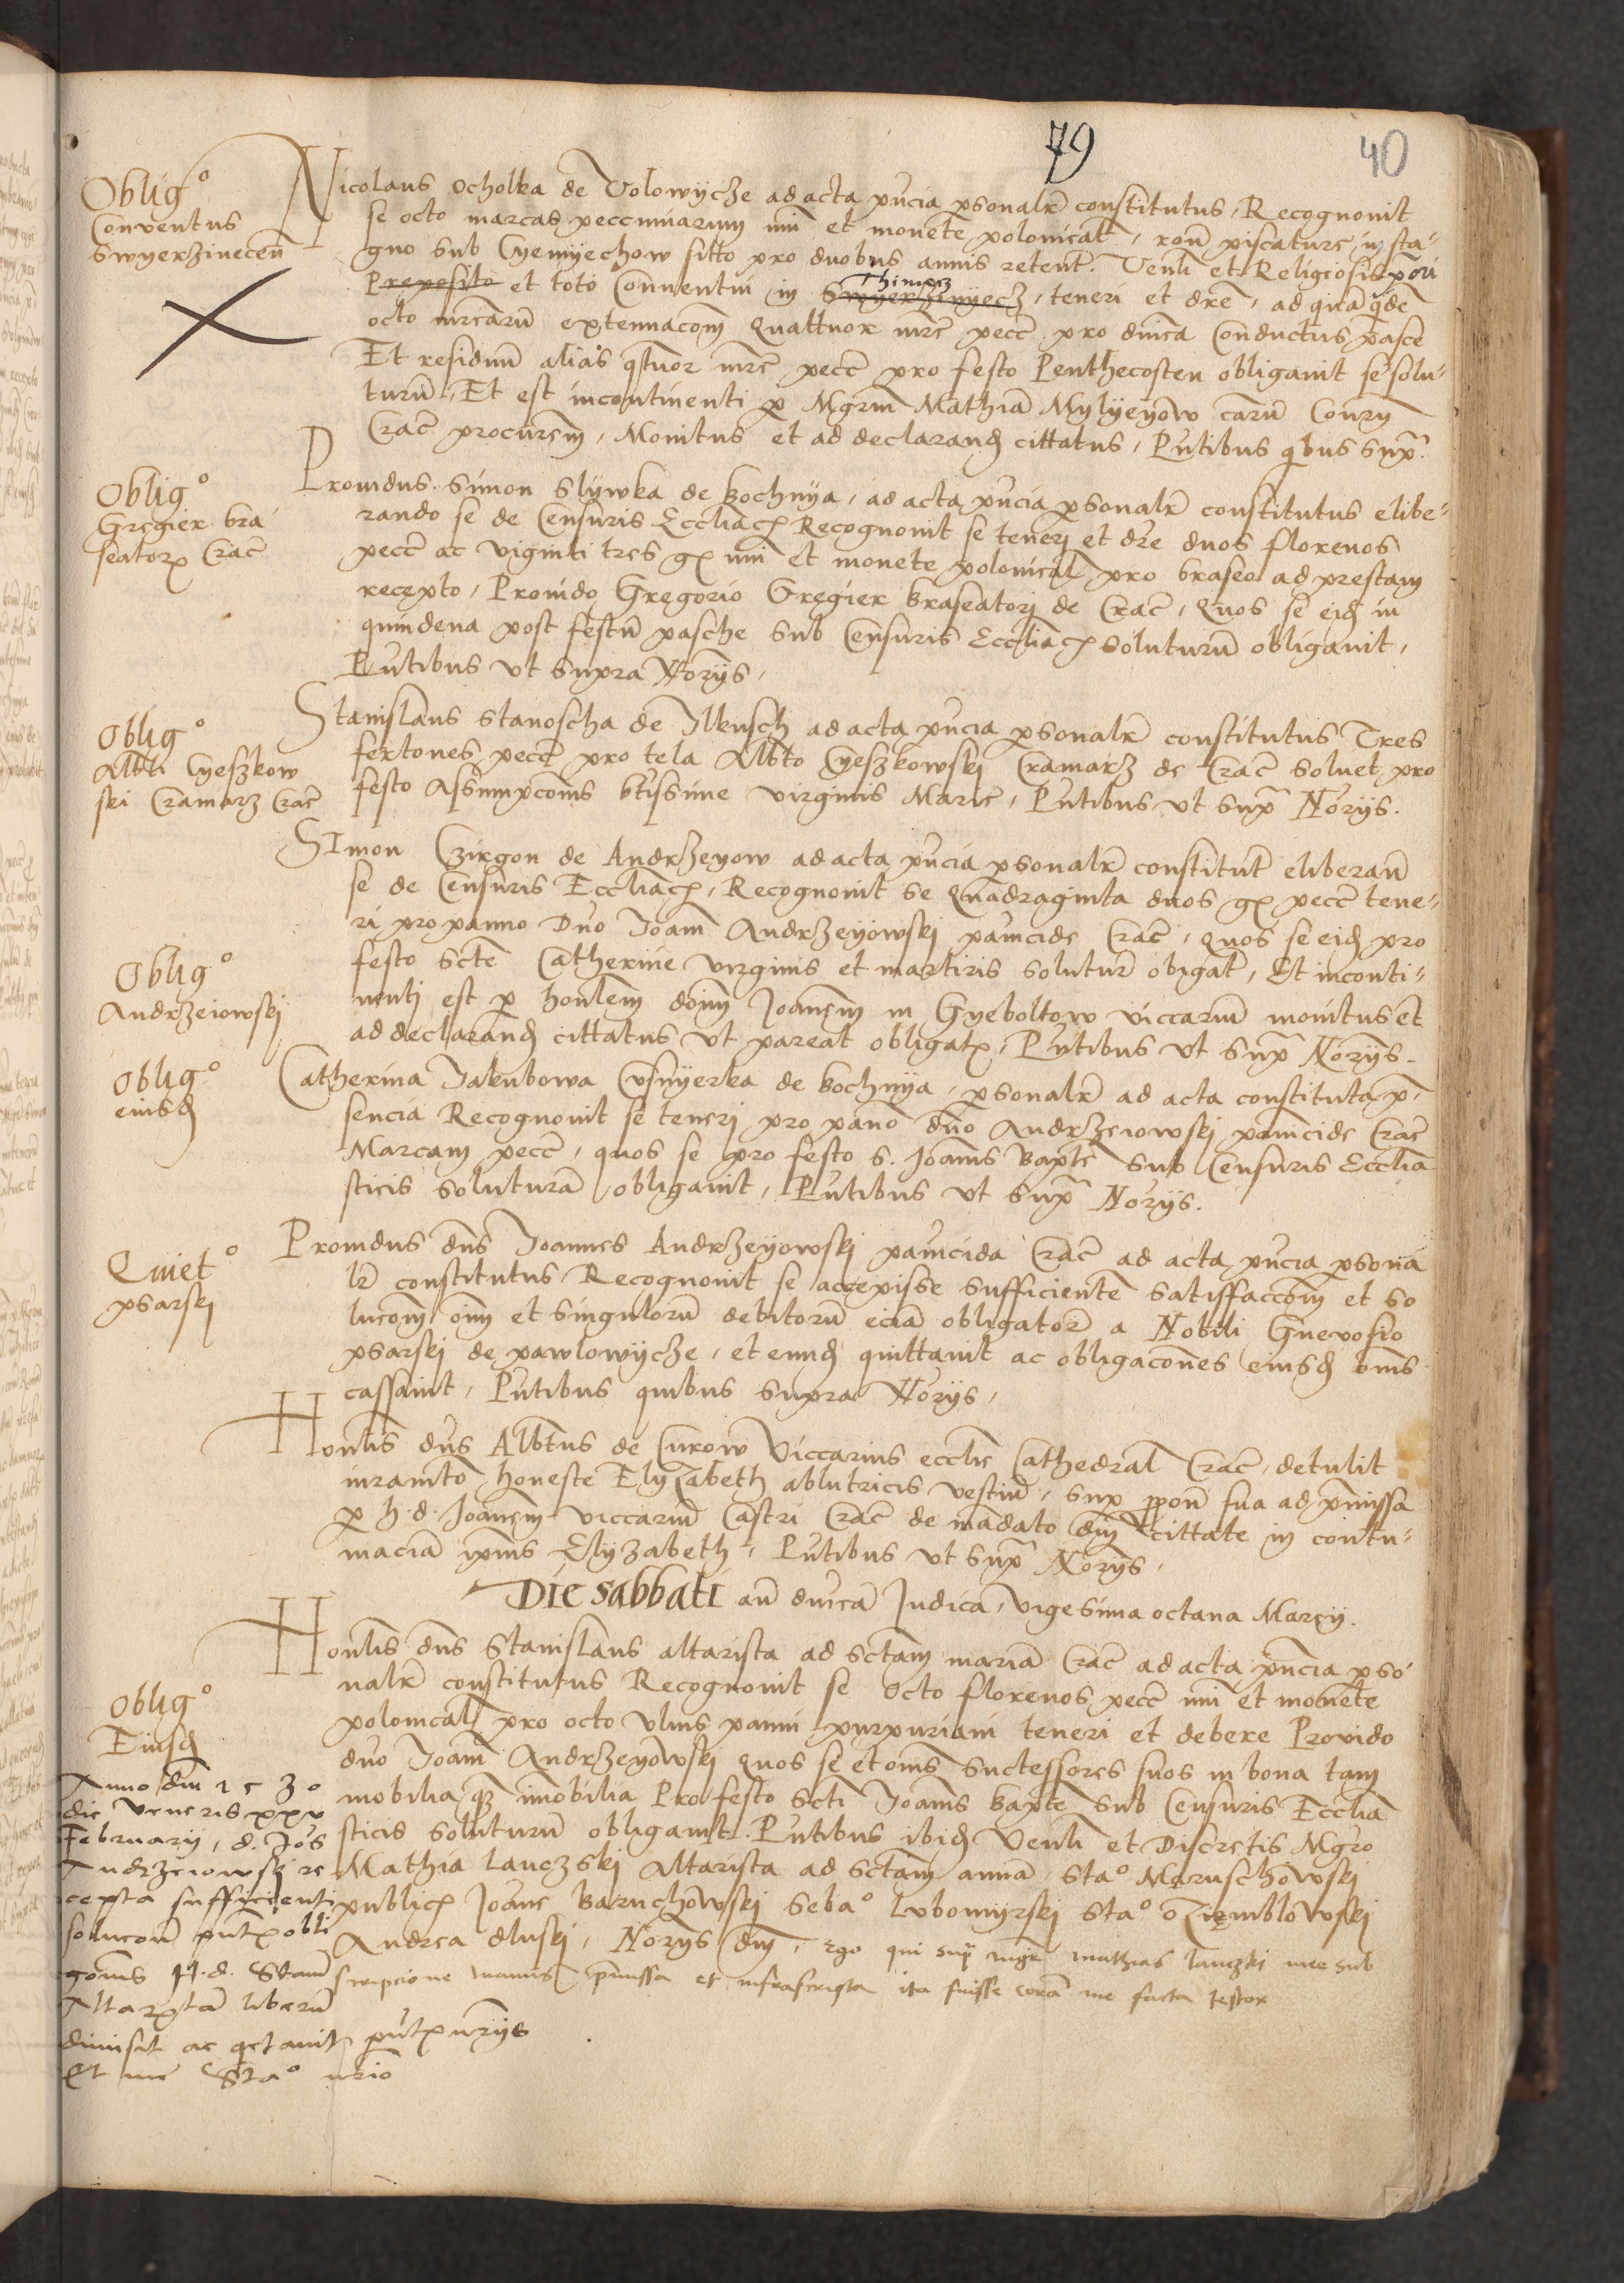 79
40
Obligᵒ
Conventus
Swyerzinecen̄
Nicolaus Ocholka de Volowycze ad acta pn̄cia psonalr̄ constitutus, Recognovit
se octo marcas peccuniarum nūi et monete polonicał, ron̄ piscature in sta-
gno sub Cyemyechow sitto pro duobus annis retent. Venli et Religiosis p̄ori
Preposito et toto Conventui in Swyerzenyecz Thinecz, teneri et dr̄e, ad quā qdē
octo mrcarū extenuacōm Quattuor mrc̄ pecc̄ pro dn̄ica Conductus pasce
Et residuū alias qtuor mrc̄ pecc̄ pro festo Penthecosten obligavit se solu-
turū, Et est incontinenti p Mgrm̄ Mathiā Mylyeyow
Crac̄ procurem̄, Monitus et ad declarand̄ cittatus, Pn̄tibus qibus sup̄.
Obligᵒ
Gregier bra
seatoꝝ Crac̄
Providus Simon Slywka de Bochnya, ad acta pn̄cia psonalr̄ constitutus elibe-
rando se de Censuris Eccliacꝭ Recognovit se teneri et dr̄e duos florenos
pecc̄ ac viginti tres gꝭ nūi et monete polonicał pro braseo ad prestam
recepto, Provido Gregorio Gregier braseatori de Crac̄, Quos se eid̄ in
quindena post festū pasche sub Censuris Eccliacꝭ soluturū obligavit,
Pn̄tibus ut supra Noriis,
Obligᵒ
Albti Cyeszkow
ski Cramarz Crac̄
Stanislaus Stanoscha de Ilkusch ad acta pn̄cia psonalr̄ constitutus Tres
fertones pecc̄ pro tela Albto Cyeszkowski Cramarz de Crac̄ solvet pro
festo Assumpcoīs btissime virginis Marie, Pn̄tibus ut sup̄ Noriis.
Simon Czirgon de Andrzeyow ad acta pn̄cia psonalr̄ constitut̄ eliberan̄
se de Censuris Eccliacꝭ, Recognovit se Quadraginta duos gꝭ pecc̄ tene-
ri pro panno Dn̄o Joan̄i Andrzeyowski pan̄icide Crac̄, quos se eid̄ pro
festo sct̄e Catherine virginis et martiris solutur̄ obigat̄, Et inconti-
nenti est p honłem dōim Joan̄em in Gyeboltow viccariū monitus et
ad declarand̄ cittatus ut pareat obligatꝭ, Pn̄tibus ut sup̄ Noriis.
Obligᵒ
Andrzeiowski
Obligᵒ
eiusd̄
Catherina Jakubowa Cusnyerka de Bochnya, psonalr̄ ad acta constituta p̄-
sencia Recognovit se teneri pro pan̄o dn̄o Andrzeiowski pan̄icide Crac̄
Marcam pecc̄, quos se pro festo s. Joan̄is Bapte sub Censuris Ecclia
sticis soluturā obligavit, Pn̄tibus ut sup̄ Noriis.
Quietᵒ
psarski
Providus dn̄s Joannes Andrzeyowski pan̄icida Crac̄ ad acta pn̄cia psona
lr̄ constitutus Recognovit se accepisse sufficientē satiffaccōm et so
lucōm oim̄ et singulorū debitorū eciā obligatoꝝ a Nobili Gnevosio
psarski de pawlowycze, et eund̄ quittavit ac obligacōnes eiusd̄ om̄s
cassavit, Pn̄tibus quibus supra Noriis,
Honlis dn̄s Albtus de Curow Viccarius ecclie Cathedral Crac̄, detulit
iuramto honeste Elyzabeth ablutricis vestiū, sup ꝓpon̄ sua ad p̄missa
p h. d. Joan̄em viccariū Castri Crac̄ de mādato dn̄i cittate in contu-
maciā ip̄ius Elyzabeth, Pn̄tibus ut sup̄ Noriis,
Die Sabbati an̄ dn̄icā Judica, vigesima octava Marcy.
Honlis dn̄s Stanislaus altarista ad sctam mariā Crac̄ ad acta pn̄cia pso-
nalr̄ constitutus Recognovit se octo florenos pecc̄ nūi et monete
polonical pro octo ulnis panni purpuriani teneri et debere Provido
dn̄o Joan̄i Andrzeyowski Quos se et om̄s successores suos in bona tam
mobilia q̄ȝ im̄obilia Pro festo sct̄i Joan̄is bapte sub Censuris Ecclia
sticis soluturū obligavit. Pn̄tibus ibid̄ Venli et Discretis Mgro
Mathia Lanczski Altarista ad sctam annā, Staᵒ Maruschowski
publicꝭ Joan̄e Baruchowski Sebaᵒ Lubomyrski Staᵒ Oziemblowski
Andrea dluski, Noriis dn̄i, Ego qui sup̄ mgr̄ Mathias lanczki mee sub
scripcione manus p̄missa et infrascripta ita fuisse corā me facta testor
Obligᵒ
Eiusd̄
Anno dn̄i 15 30
die Veneris xxv
February, d. Jo̅s
Andrzeiowski re
cepta sufficienti
solucōn pn̄tꝭ obli
gōnis H. d. Stan̄
Altaristā liberū
dimisit ac qctavit pn̄tꝭ n̄riis
Et me Staᵒ n̄rio